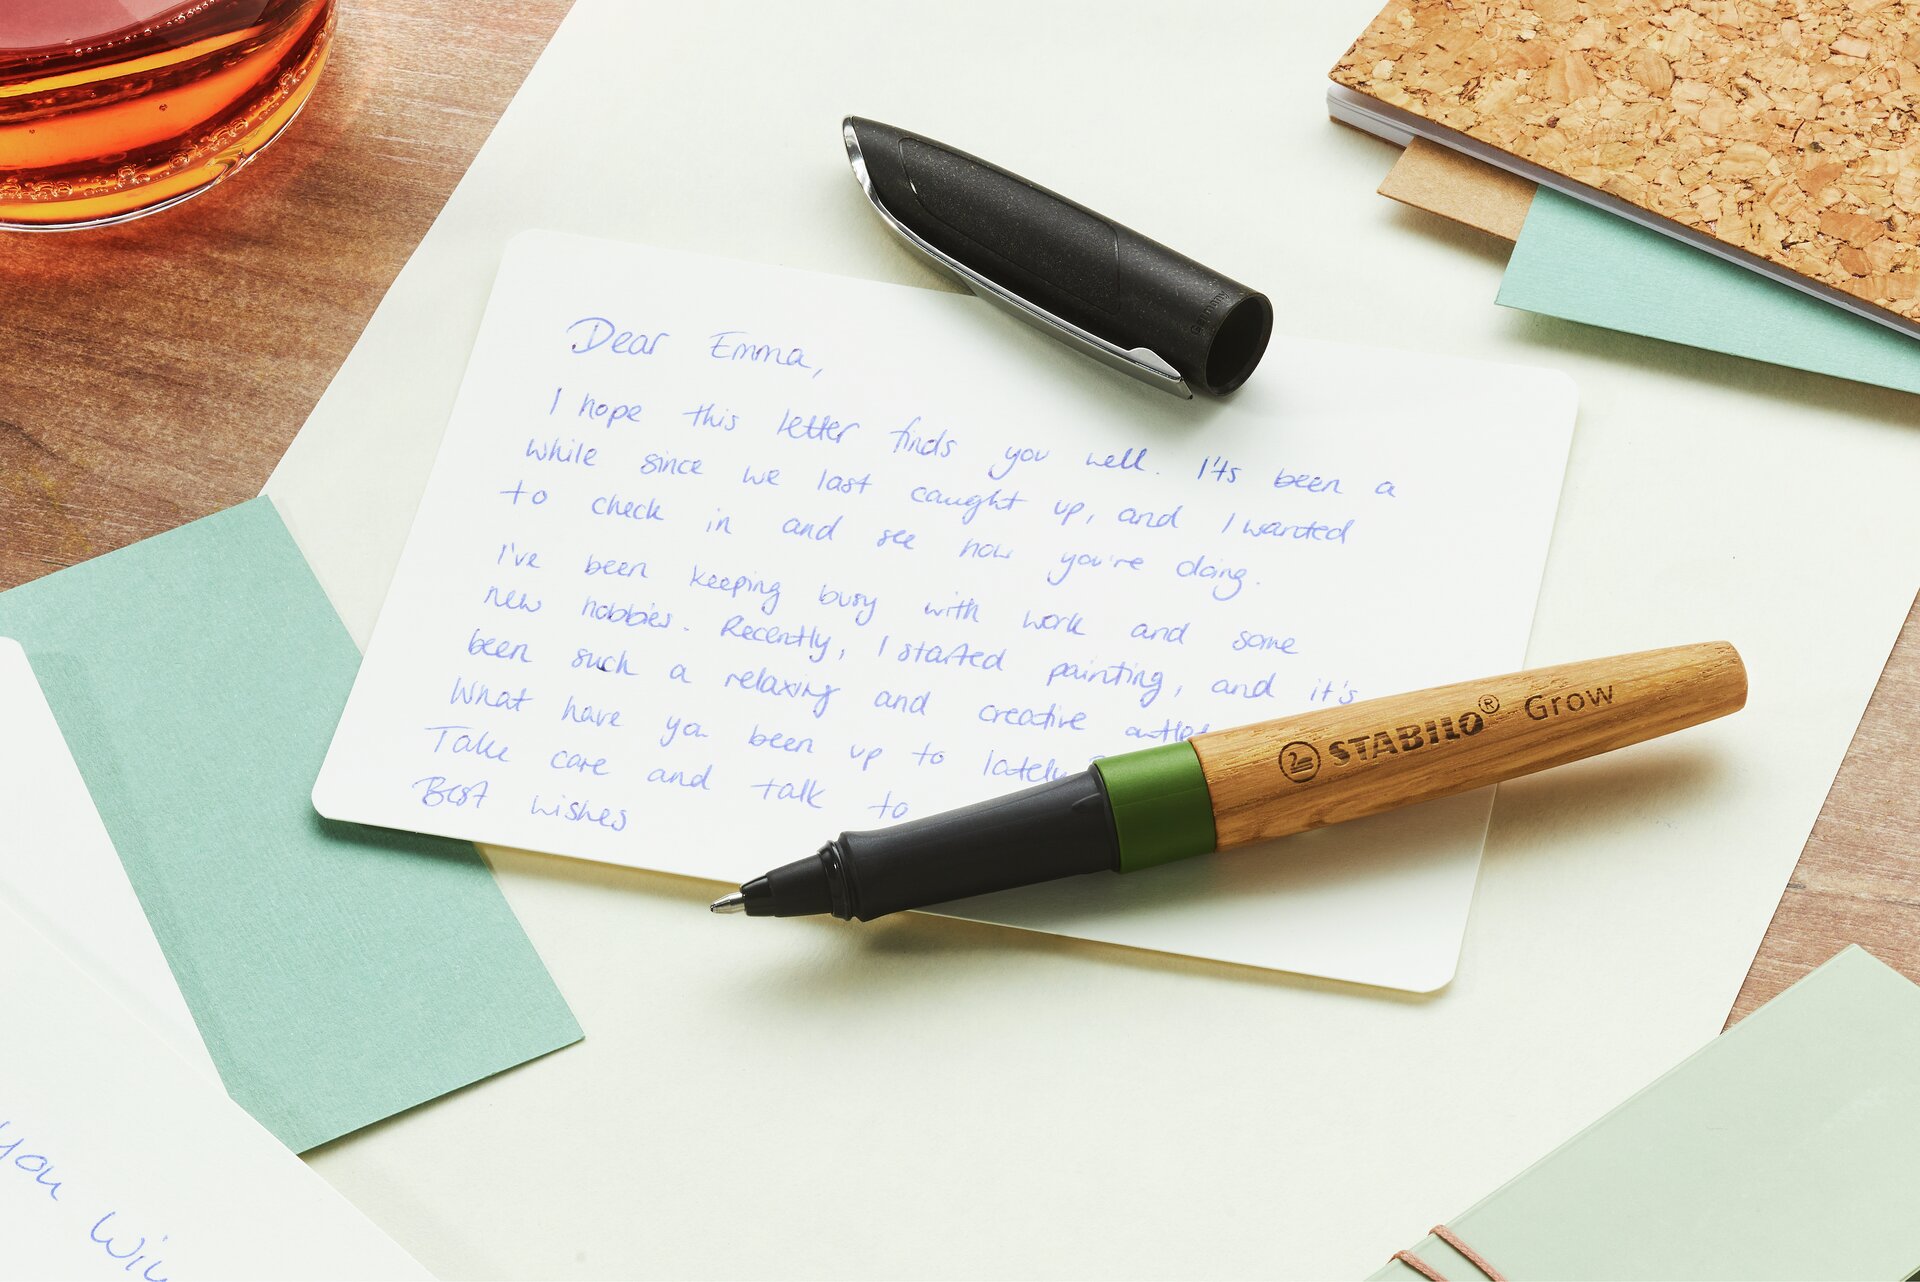 Dear Emma,
I hope this letter finds you well. It's been a
while since we last caught up, and I wanted
to check in and see how you're doing.
I've been keeping busy with work and some
new hobbies. Recently, I started painting, and it's
been such a relaxing and creative outlet
What have you been up to lately?
Take care and talk to
Best wishes
STABILO® Grow
Germany
you